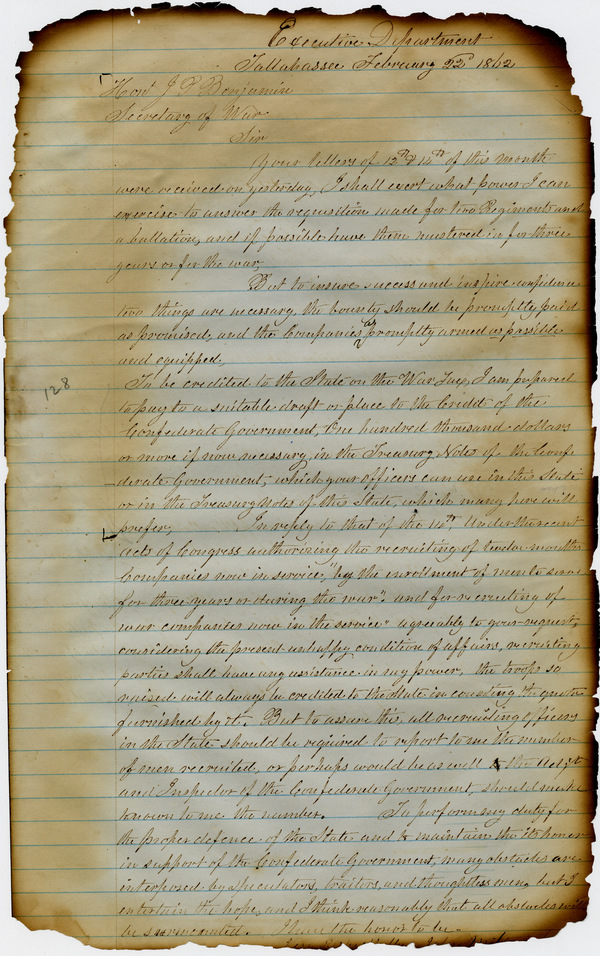 Executive Department
Tallahassee February 22d 1862
Hon J P Benjamin
Secretary of War
Sir
Your letters of 12th & 14th of this month
were received on yesterday, I shall exert what power I can
exercise to answer the requisition made for two Regiments and
a battalion, and if possible have them mustered in for three
years or for the war,
But to insure success and inspire confidence
two things are necessary, the bounty should be promptly paid
as promised, and the Companies as promptly armed as possible
and equipped.
128
To be credited to the State on the War Tax, I am prepared
to pay to a suitable draft or place to the Credit of the
Confederate Government, One hundred thousand dollars
or more if now necessary, in the Treasury Notes of the Confe
derate Government, which your officers can use in this State
or in the Treasury Notes of this State, which many here will
prefer, In reply to that of the 14th Under the recent
acts of Congress authorising the recruiting of twelve months
Companies now in service, "by the enrollment of men to serve
for three years or during the war". and for recruiting of
war companies now in the service" agreeably to your request,
considering the present unhappy condition of affairs, recruiting
parties shall have any assistance in my power, the troops so
raised will always be credited to the State in counting the quota
furnished by it. But to assure this, all recruiting officers
in the State should be required to report to me the number
of men recruited, or perhaps would be as well the Adjt
and Inspector of the Confederate Government, should make
known to me the number. To perform my duty for
the proper defence of the State and to maintain the its honor
in support of the Confederate Government, many obstacles are
interposed by speculators, traitors, and thoughtless men, but I
entertain the hope, and I think reasonably that all obstacles will
be surmounted. I have the honor to be.